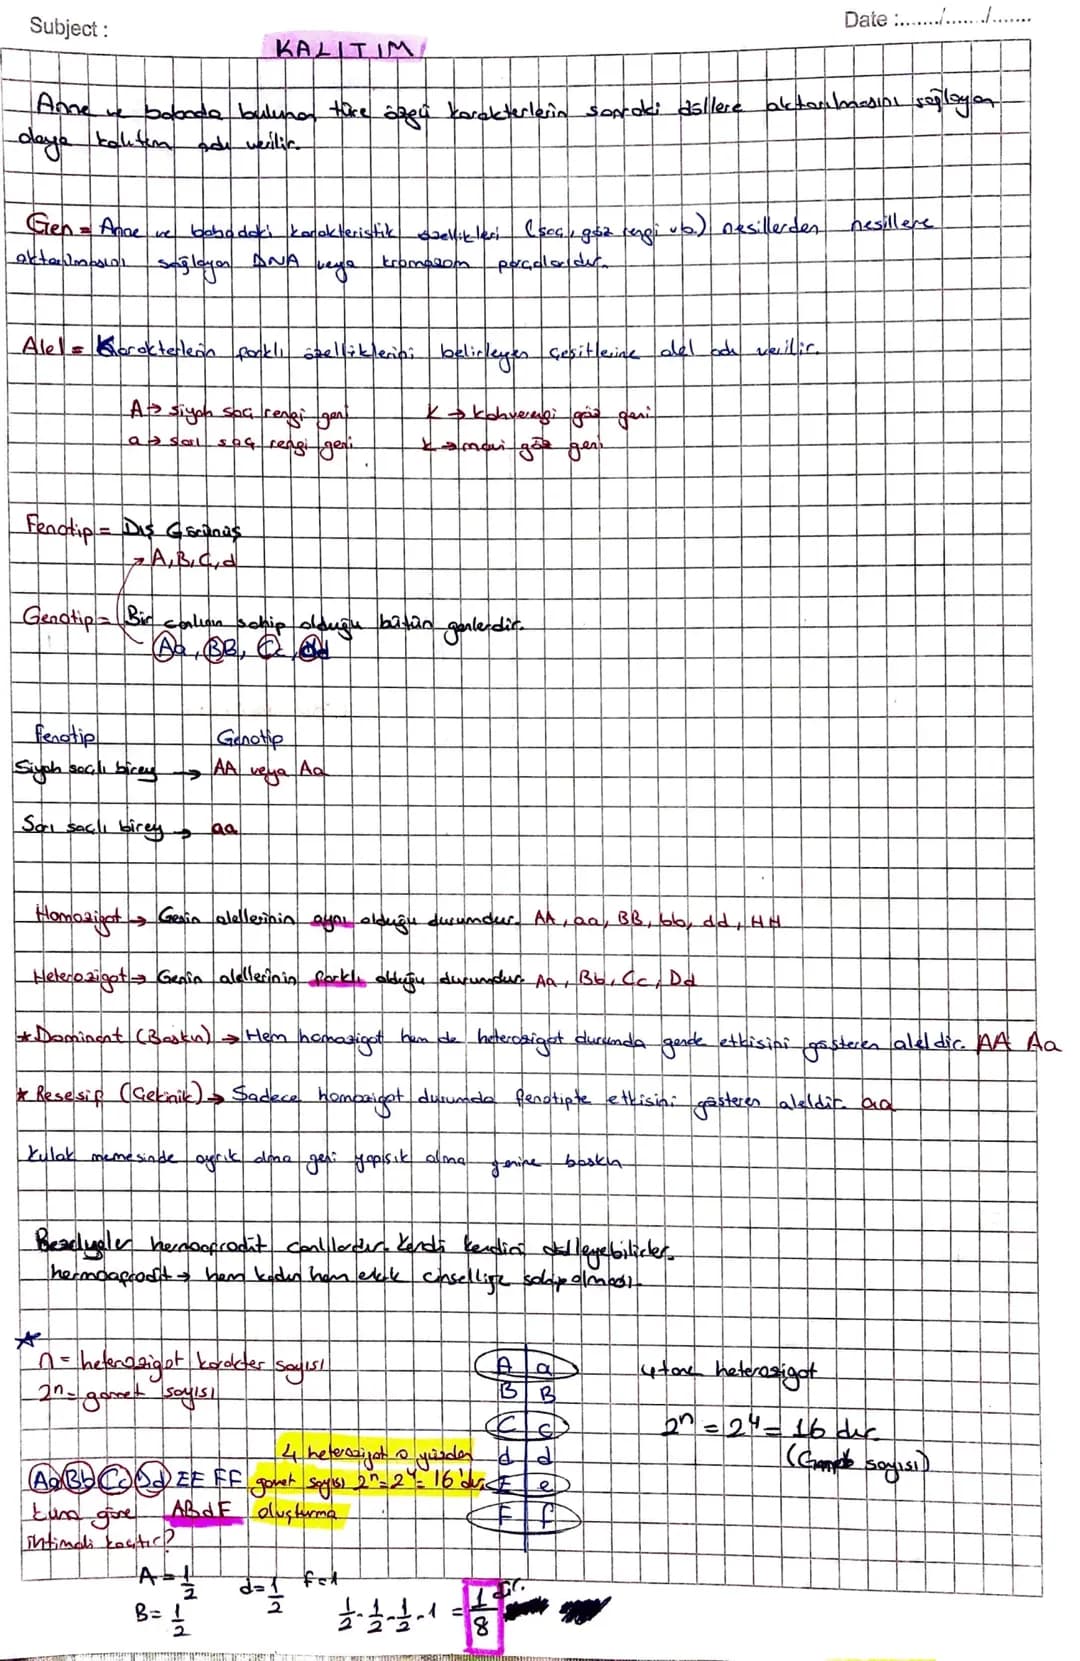 Subject :
Date :......./......./.......
KALITIM
Anne ve babada bulunan türe özgü karakterlerin sonraki döllere aktarılmasını sağlayan
olaya kalıtım adı verilir.
Gen = Anne ve babadaki karakteristik özellikleri (saç, göz rengi vb.) nesillerden nesillere
aktarılmasını sağlayan DNA veya kromozom parçalarıdır.
Alel = Karakterlerin farklı özelliklerini belirleyen çeşitlerine alel adı verilir.
A → siyah saç rengi geni K → kahverengi göz geni
a → sarı saç rengi geni k → mavi göz geni
Fenotip = Dış Görünüş
→ A, B, C, d
Genotip = Bir canlının sahip olduğu bütün genlerdir.
Aa, BB, Cc, dd
fenotip Genotip
Siyah saçlı birey → AA veya Aa
Sarı saçlı birey → aa
Homozigot → Genin alellerinin aynı olduğu durumdur. AA, aa, BB, bb, dd, HH
Heterozigot → Genin alellerinin farklı olduğu durumdur. Aa, Bb, Cc, Dd
* Dominant (Baskın) → Hem homozigot hem de heterozigot durumda gende etkisini gösteren aleldir. AA Aa
* Resesif (Çekinik) → Sadece homozigot durumda fenotipte etkisini gösteren aleldir. aa
Kulak memesinde ayrık olma geni yapışık olma genine baskın
Bezelyeler hermafrodit canlılardır. Kendi kendini dölleyebilirler.
hermafrodit → hem kadın hem erkek cinselliğe sahip olması
n = heterozigot karakter sayısı
2ⁿ = gamet sayısı
A a
B B
C c
d d
E e
F f
4 tane heterozigot
2ⁿ = 2⁴ = 16 dır.
(Gamet sayısı)
4 heterozigot o yüzden
Aa Bb Cc Dd EE FF gamet sayısı 2ⁿ = 2⁴ = 16'dır
buna göre ABdF oluşturma
ihtimali kaçtır?
A = 1/2 d = 1/2 f = 1
B = 1/2 1/2 . 1/2 . 1/2 . 1 = 1/8 dir.